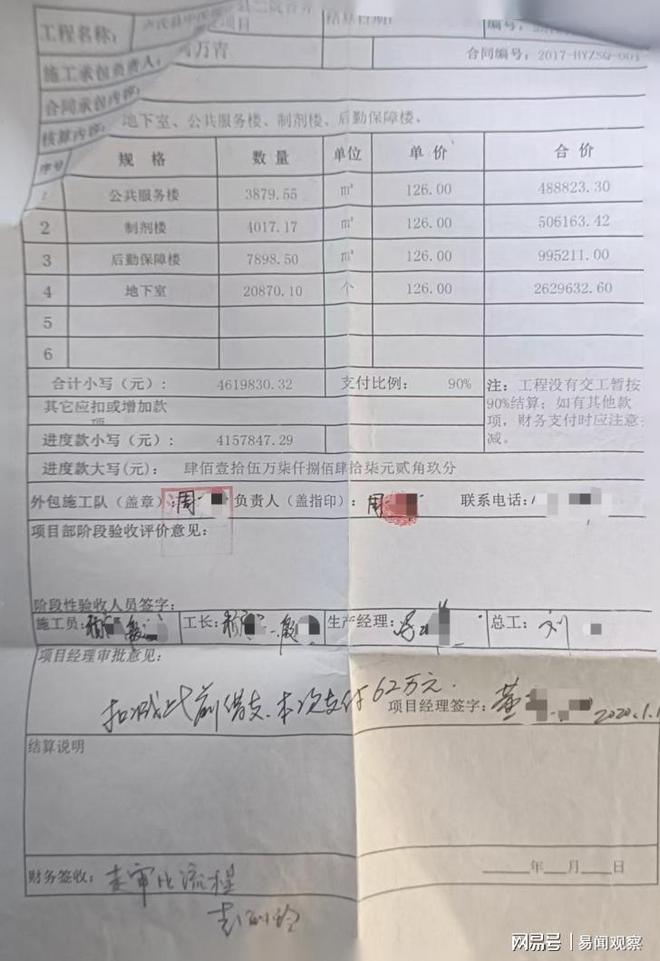 工程名称：
项目
结算日期：
编号：
施工承包负责人：
万青
合同编号：2017-HYZSQ-001
合同承包内容：
核算内容：
地下室、公共服务楼、制剂楼、后勤保障楼、
序号 规 格 数 量 单位 单 价 合 价
1 公共服务楼 3879.55 m² 126.00 488823.30
2 制剂楼 4017.17 m² 126.00 506163.42
3 后勤保障楼 7898.50 m² 126.00 995211.00
4 地下室 20870.10 个 126.00 2629632.60
5
6
合计小写（元）： 4619830.32 支付比例： 90%
注：工程没有交工暂按
90%结算；如有其他款
项，财务支付时应注意扣
减。
其它应扣或增加款
项
进度款小写（元）： 4157847.29
进度款大写(元)： 肆佰壹拾伍万柒仟捌佰肆拾柒元贰角玖分
外包施工队（盖章）：周 负责人（盖指印）：周 联系电话：
项目部阶段验收评价意见：
阶段性验收人员签字：
施工员： 工长： 生产经理： 总工：刘
项目经理审批意见：
扣减此前借支、本次支付62万元．
项目经理签字：董 2020.1.1
结算说明
财务签收：走审批流程
年 月 日
网易号 | 易闻观察